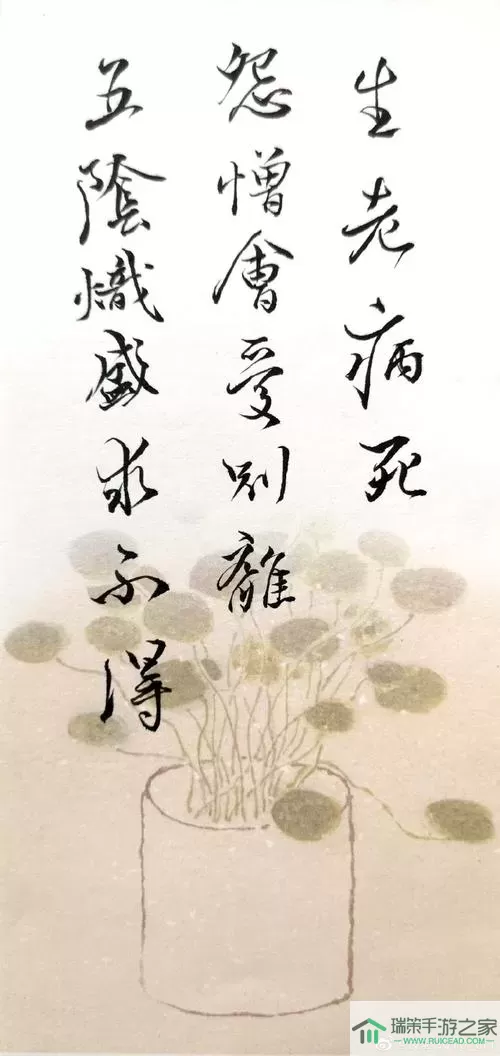 生老病死
怨憎會愛別離
五陰熾盛求不得
瑞策手游之家
WWW.RUICEAD.COM